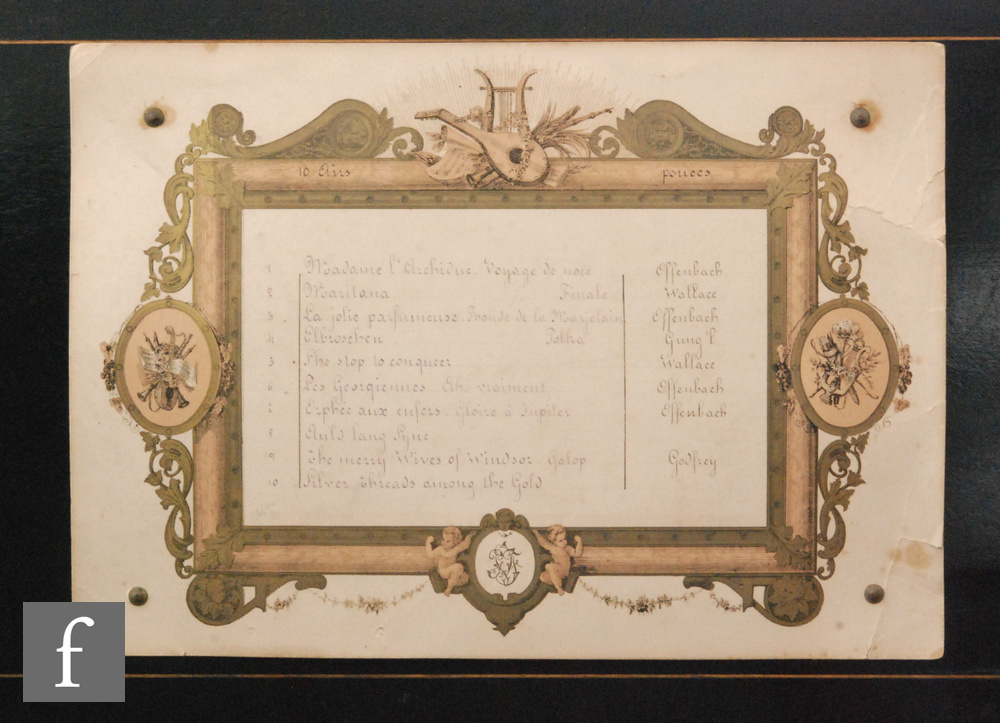 10 Airs pouces
1 Madame l'Archiduc. Voyage de noce Offenbach
2 Maritana Finale Wallace
3 La jolie parfumeuse. Ronde de la Marjolain Offenbach
4 Polka Gung'l
5 She stop to conquer Wallace
6 Les Georgiennes Ah vraiment Offenbach
7 Orphée aux enfers. Gloire à Jupiter Offenbach
8 Auld lang Syne
9 The merry Wives of Windsor. Galop Godfrey
10 Silver threads among the Gold
f